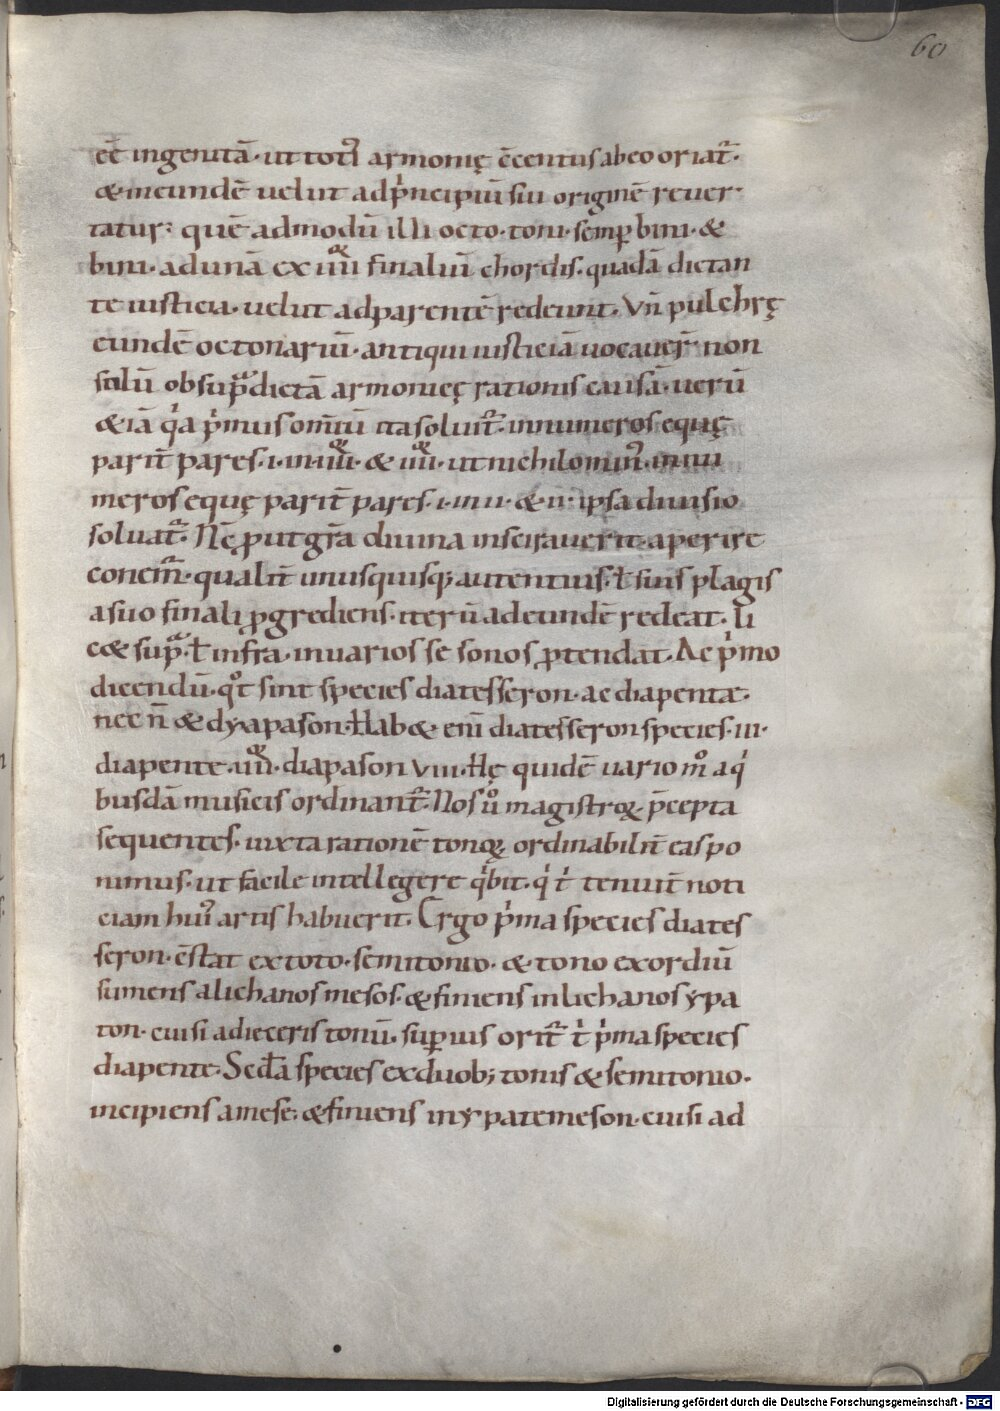 60
eē ingenitā· ut toti᾽ armonię c̄centus ab eo oriat᷑·
& in eundē uelut ad pͥncipiū sui originē reuer·
tatur; quē admodū illi octo· toni· semꝑ bini· &
bini· ad unā ex iiiiᵒʳ finaliū chordis· quadā dictan
te iusticia· uelut ad parentē redeunt· Vn̄ pulchrę
eundē octonariū· antiqui iusticiā uocauer̄· non
solū ob supᵃdictā armonieę rationis causā· uerū
& iā qͥa pͥmus omiū ita soluit᷑· in numeros equę
parit̄ pares· i· in· iiiiᵒʳ· & iiiiᵒʳ· ut nichilomin᾽ in nu
meros equę parit̄ pares· i· in ii· & ii· ipsa diuisio
soluat᷑· Nc̄ ꝓut gr̄a diuina inspirauerit· aperire
conem᷑· qualit̄ unusquisq; autentus· ł suus plagis
a suo finali ꝓgrediens· iterū ad eundē redeat· li
c& supᵃ· ł infra· in uarios se sonos ꝓtendat· Ac pͥmo
dicendū· qᵒt sint species diatesseron· ac diapente·
nec n̄ & dyapason· Hab& eni̅ diatesseron species· iii·
diapente· iiiiᵒʳ· diapason viii· Hę quidē uario mᵒ a qͥ
busdā musicis ordinant᷑· Nos uᵒ magistroꝝ p̄cepta
sequentes· iuxta rationē tonoꝝ ordinabilit̄ eas po
nimus· ut facile intellegere qͥbit· qͥ tͥ tenuit̄ noti
ciam hui᾽ artis habuerit· Ergo pͥma species diates
seron· c̄stat ex tono· semitonio· & tono exordiū
sumens a lichanos mesos· & finiens in lichanos ypa
ton· cui si adieceris tonū· suꝑius orit᷑ tͥ pͥma species
diapente· Scd̄a species ex duob; tonis & semitonio·
incipiens a mese; & finiens in ypate meson· cui si ad
Digitalisierung gefördert durch die Deutsche Forschungsgemeinschaft - DFG